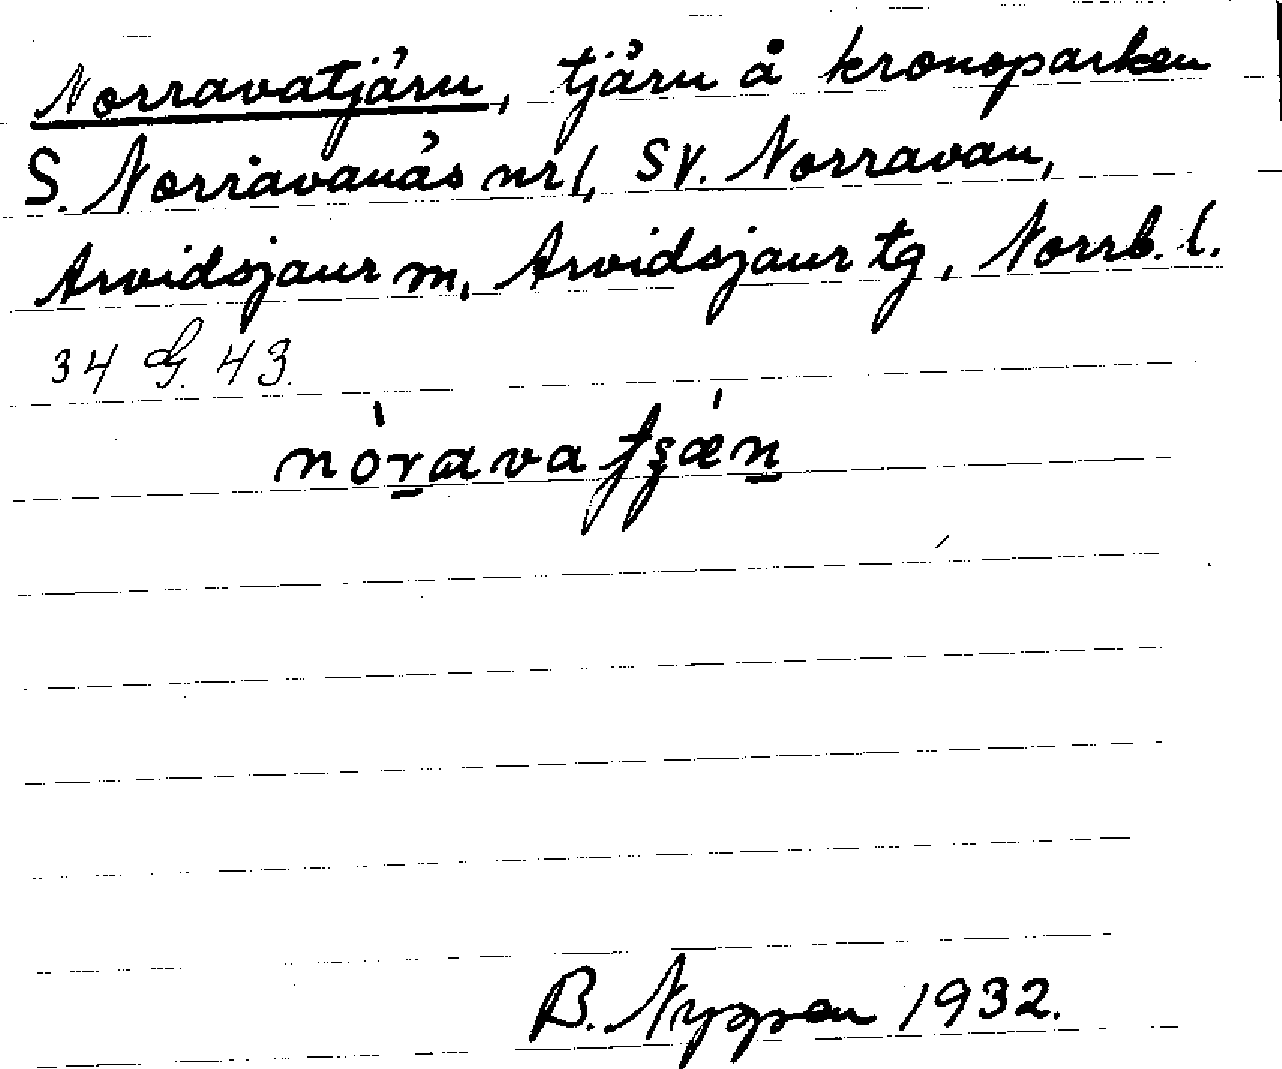 Norravatjärn, tjärn å kronoparken
S. Norravanäs nr 1, SV. Norravan,
Arvidsjaur m, Arvidsjaur tg, Norrb. l.
34 G. 43.
B. Nyppen 1932.